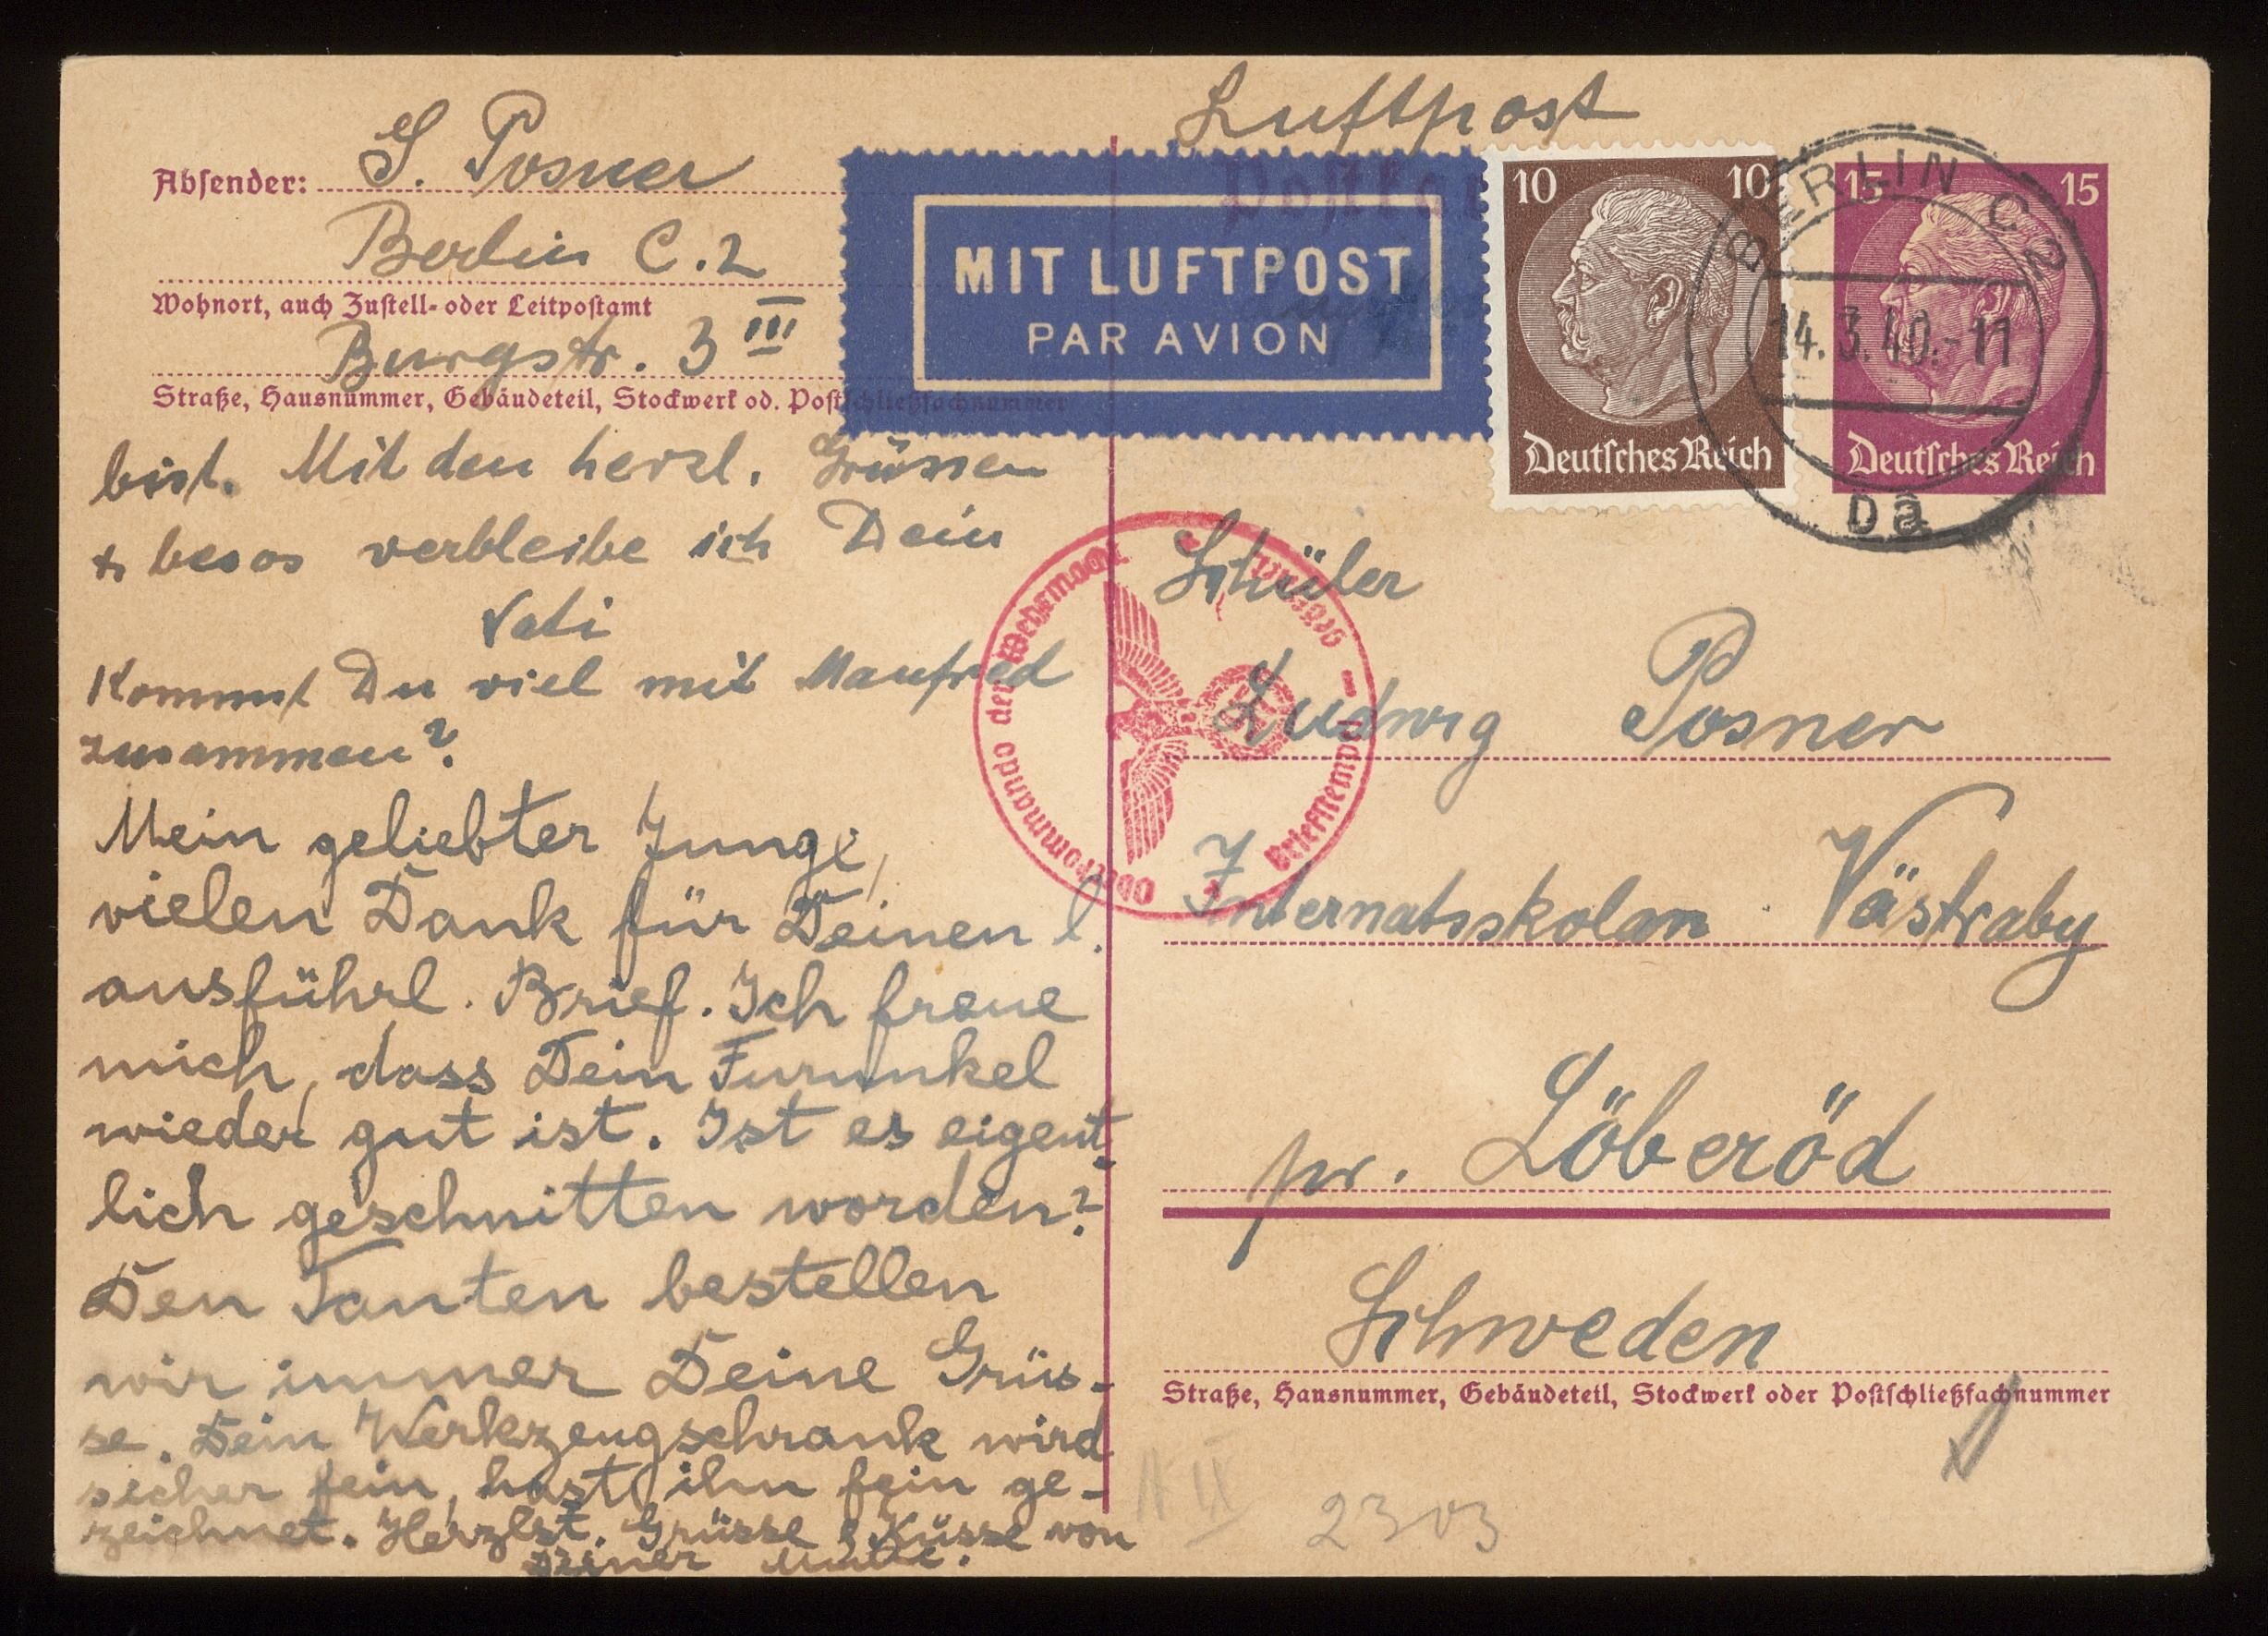 Luftpost
Absender: S. Posner
Berlin C.2
Wohnort, auch Zustell- oder Leitpostamt
Burgstr. 3 III
Straße, Hausnummer, Gebäudeteil, Stockwerk od. Postschließfachnummer
MIT LUFTPOST
PAR AVION
Postkar
10 10
Deutsches Reich
15 15
Deutsches Reich
BERLIN C2
14.3.40.-11
Da
bist. Mit den herzl. Grüssen
+ besos verbleibe ich Dein
Vati
Kommst Du viel mit Manfred
zusammen?
Mein geliebter Junge,
vielen Dank für Deinen l.
ausführl. Brief. Ich freue
mich, dass Dein Furunkel
wieder gut ist. Ist es eigent-
lich geschnitten worden?
Den Tanten bestellen
wir immer Deine Grüs-
se. Dein Werkzeugschrank wird
sicher fein, hast ihn fein ge-
zeichnet. Herzlst. Grüsse & Küsse von
Deiner Mutti.
Oberkommando der Wehrmacht
Briefstempel
Schüler
Ludwig Posner
Internatsskolan Västraby
pr. Löberöd
Schweden
Straße, Hausnummer, Gebäudeteil, Stockwerk oder Postschließfachnummer
A IX
2303